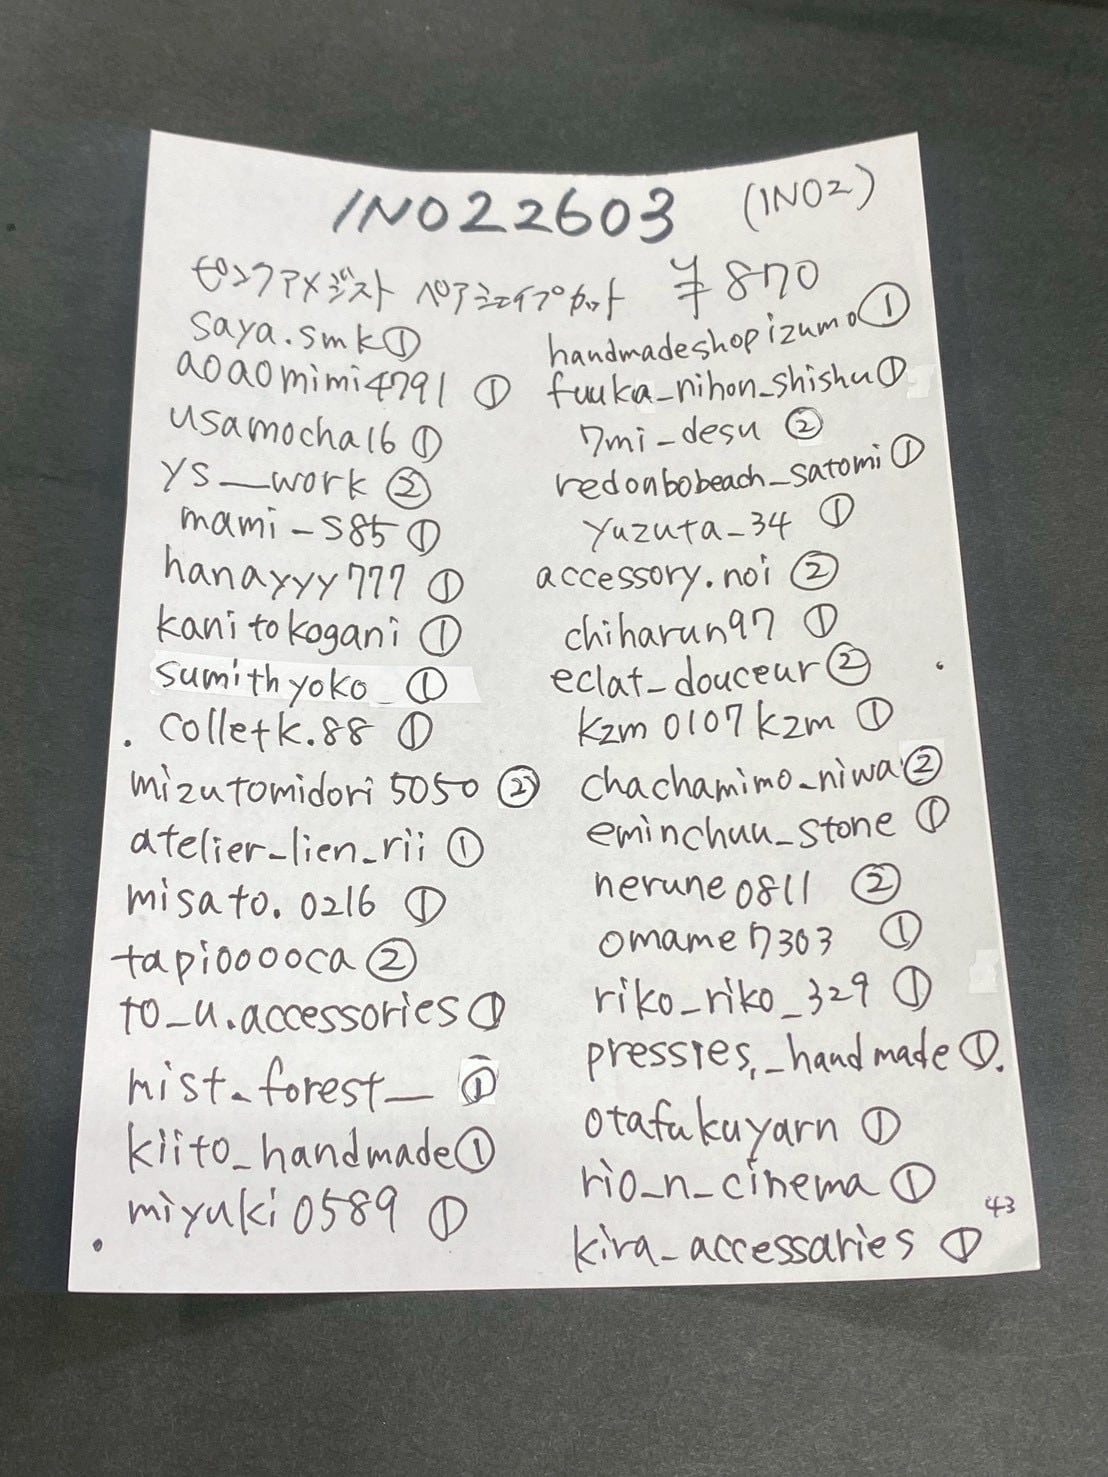 INO22603 (INO2)
ピンクアメジスト ペアシェイプカット ¥870
saya.smk①
aoaomimi4791 ①
usamocha16 ①
ys__work ②
mami_s85 ①
hanayyy777 ①
kanitokogani ①
sumithyoko_ ①
colletk.88 ①
mizutomidori5050 ②
atelier_lien_rii ①
misato.0216 ①
tapiooooca ②
to_u.accessories ①
mist_forest__ ①
kiito_handmade ①
miyuki0589 ①
handmadeshopizumo ①
fuuka_nihon_shishu ①
7mi_desu ②
redonbobeach_satomi ①
yuzuta_34 ①
accessory.noi ②
chiharun97 ①
eclat_douceur ②
kzm0107kzm ①
chachamimo_niwa ②
eminchuu_stone ①
nerune0811 ②
omame7303 ①
riko_riko_329 ①
pressies,_handmade ①.
otafukuyarn ①
rio_n_cinema ①
kira_accessaries ①
43